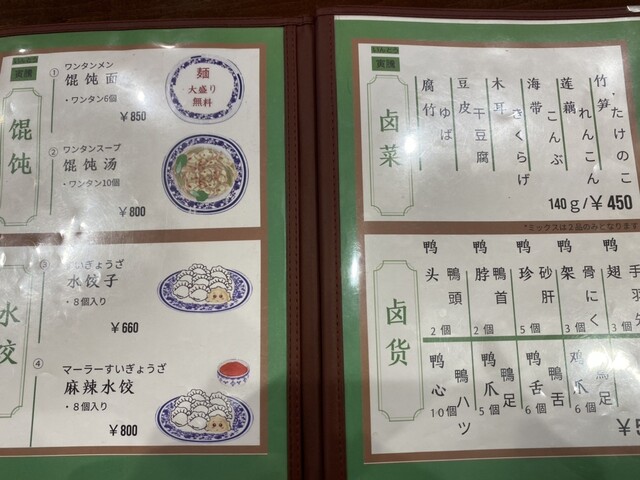 いんとう
寅湯
馄饨
①
ワンタンメン
馄饨面
・ワンタン6個
￥850
麺
大盛り
無料
②
ワンタンスープ
馄饨汤
・ワンタン10個
￥800
水饺
③
すいぎょうざ
水饺子
・８個入り
￥660
④
マーラーすいぎょうざ
麻辣水饺
・８個入り
￥800
いんとう
寅湯
卤菜
竹笋・たけのこ
莲藕 れんこん
海带 こんぶ
木耳 きくらげ
豆皮 干豆腐
腐竹 ゆば
140ｇ/￥450
*ミックスは２品のみとなります
卤货
鸭翅 手羽先 3個
鸭架 骨にく 3個
鸭珍 砂肝 5個
鸭脖 鴨首 2個
鸭头 鴨頭 2個
鸡爪 6個
鸭舌 鴨舌 6個
鸭爪 鴨足 5個
鸭心 鴨ハツ 10個